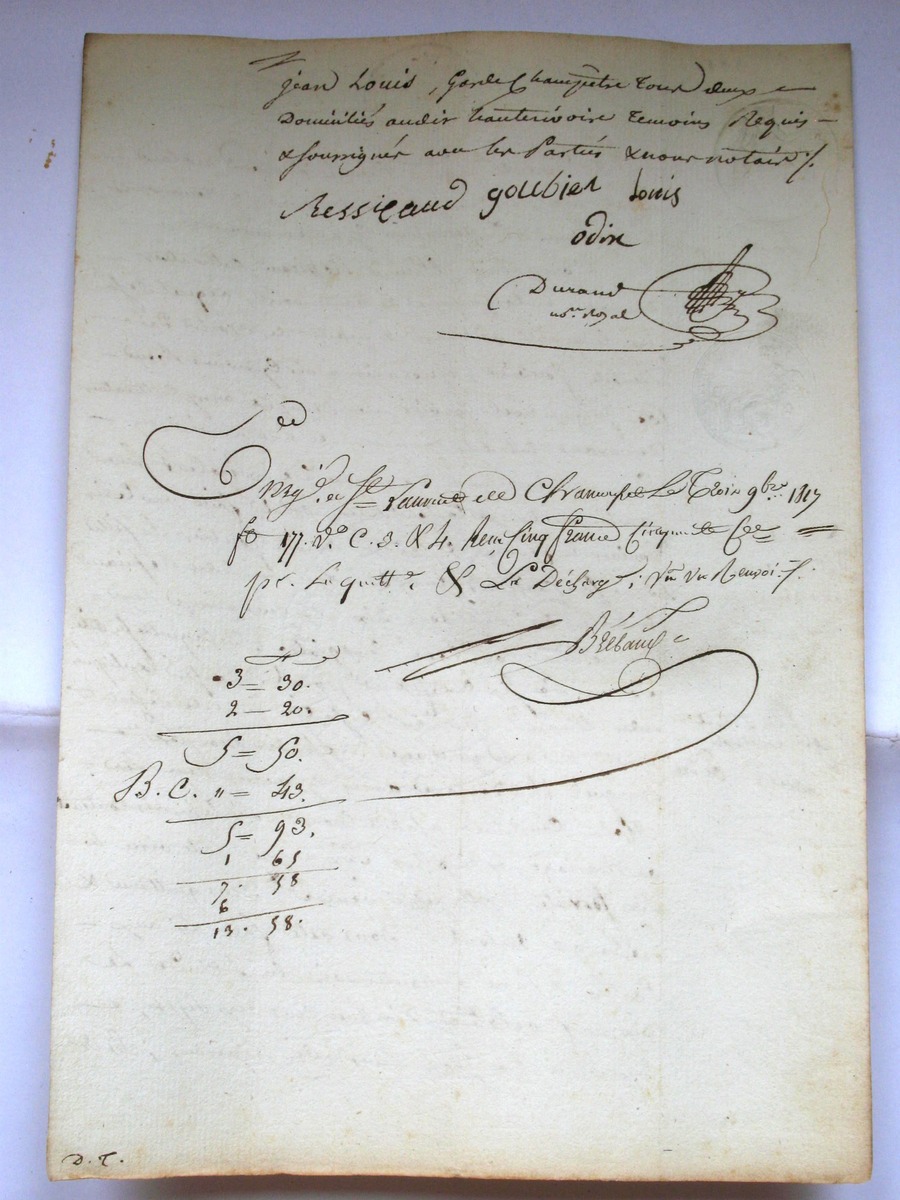 jean Louis, Garde Champetre tous deux
Domiciliés audit hauterivoire Temoins Requis
& soussignés avec les Parties & nous notaire ./.
Ressicaud goubier Louis
odin
Durand
no.re Royal
Enrg.é a St Laurent de Chamousset Le Trois 9bre 1817
fo 17. Vo C. 3. & 4. Reçu Cinq francs Cinquante Cmes
pr. La quitt.e & La Décharge, Vu un Renvoi ./.
Brébant
3 = 30.
2 — 20.
5 = 50.
B. C. „ = 43.
5 = 93.
1 65
7. 58
6
13. 58.
D. T.